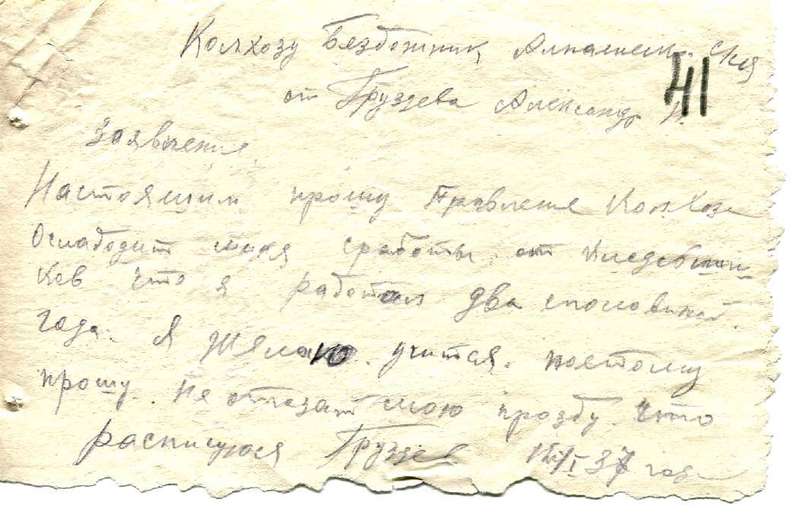 Колхозу Бязбожник
от Груздева Александр Н.
41
Заявления
Настояшим прошу Правление Колхоза
Ослабодит меня сработы от
ков что я работал два споловиной
года. Я жялаю. учится. поетому
прошу. Не отказат мою прозбу. Что
расписуюся Груздев 37 года